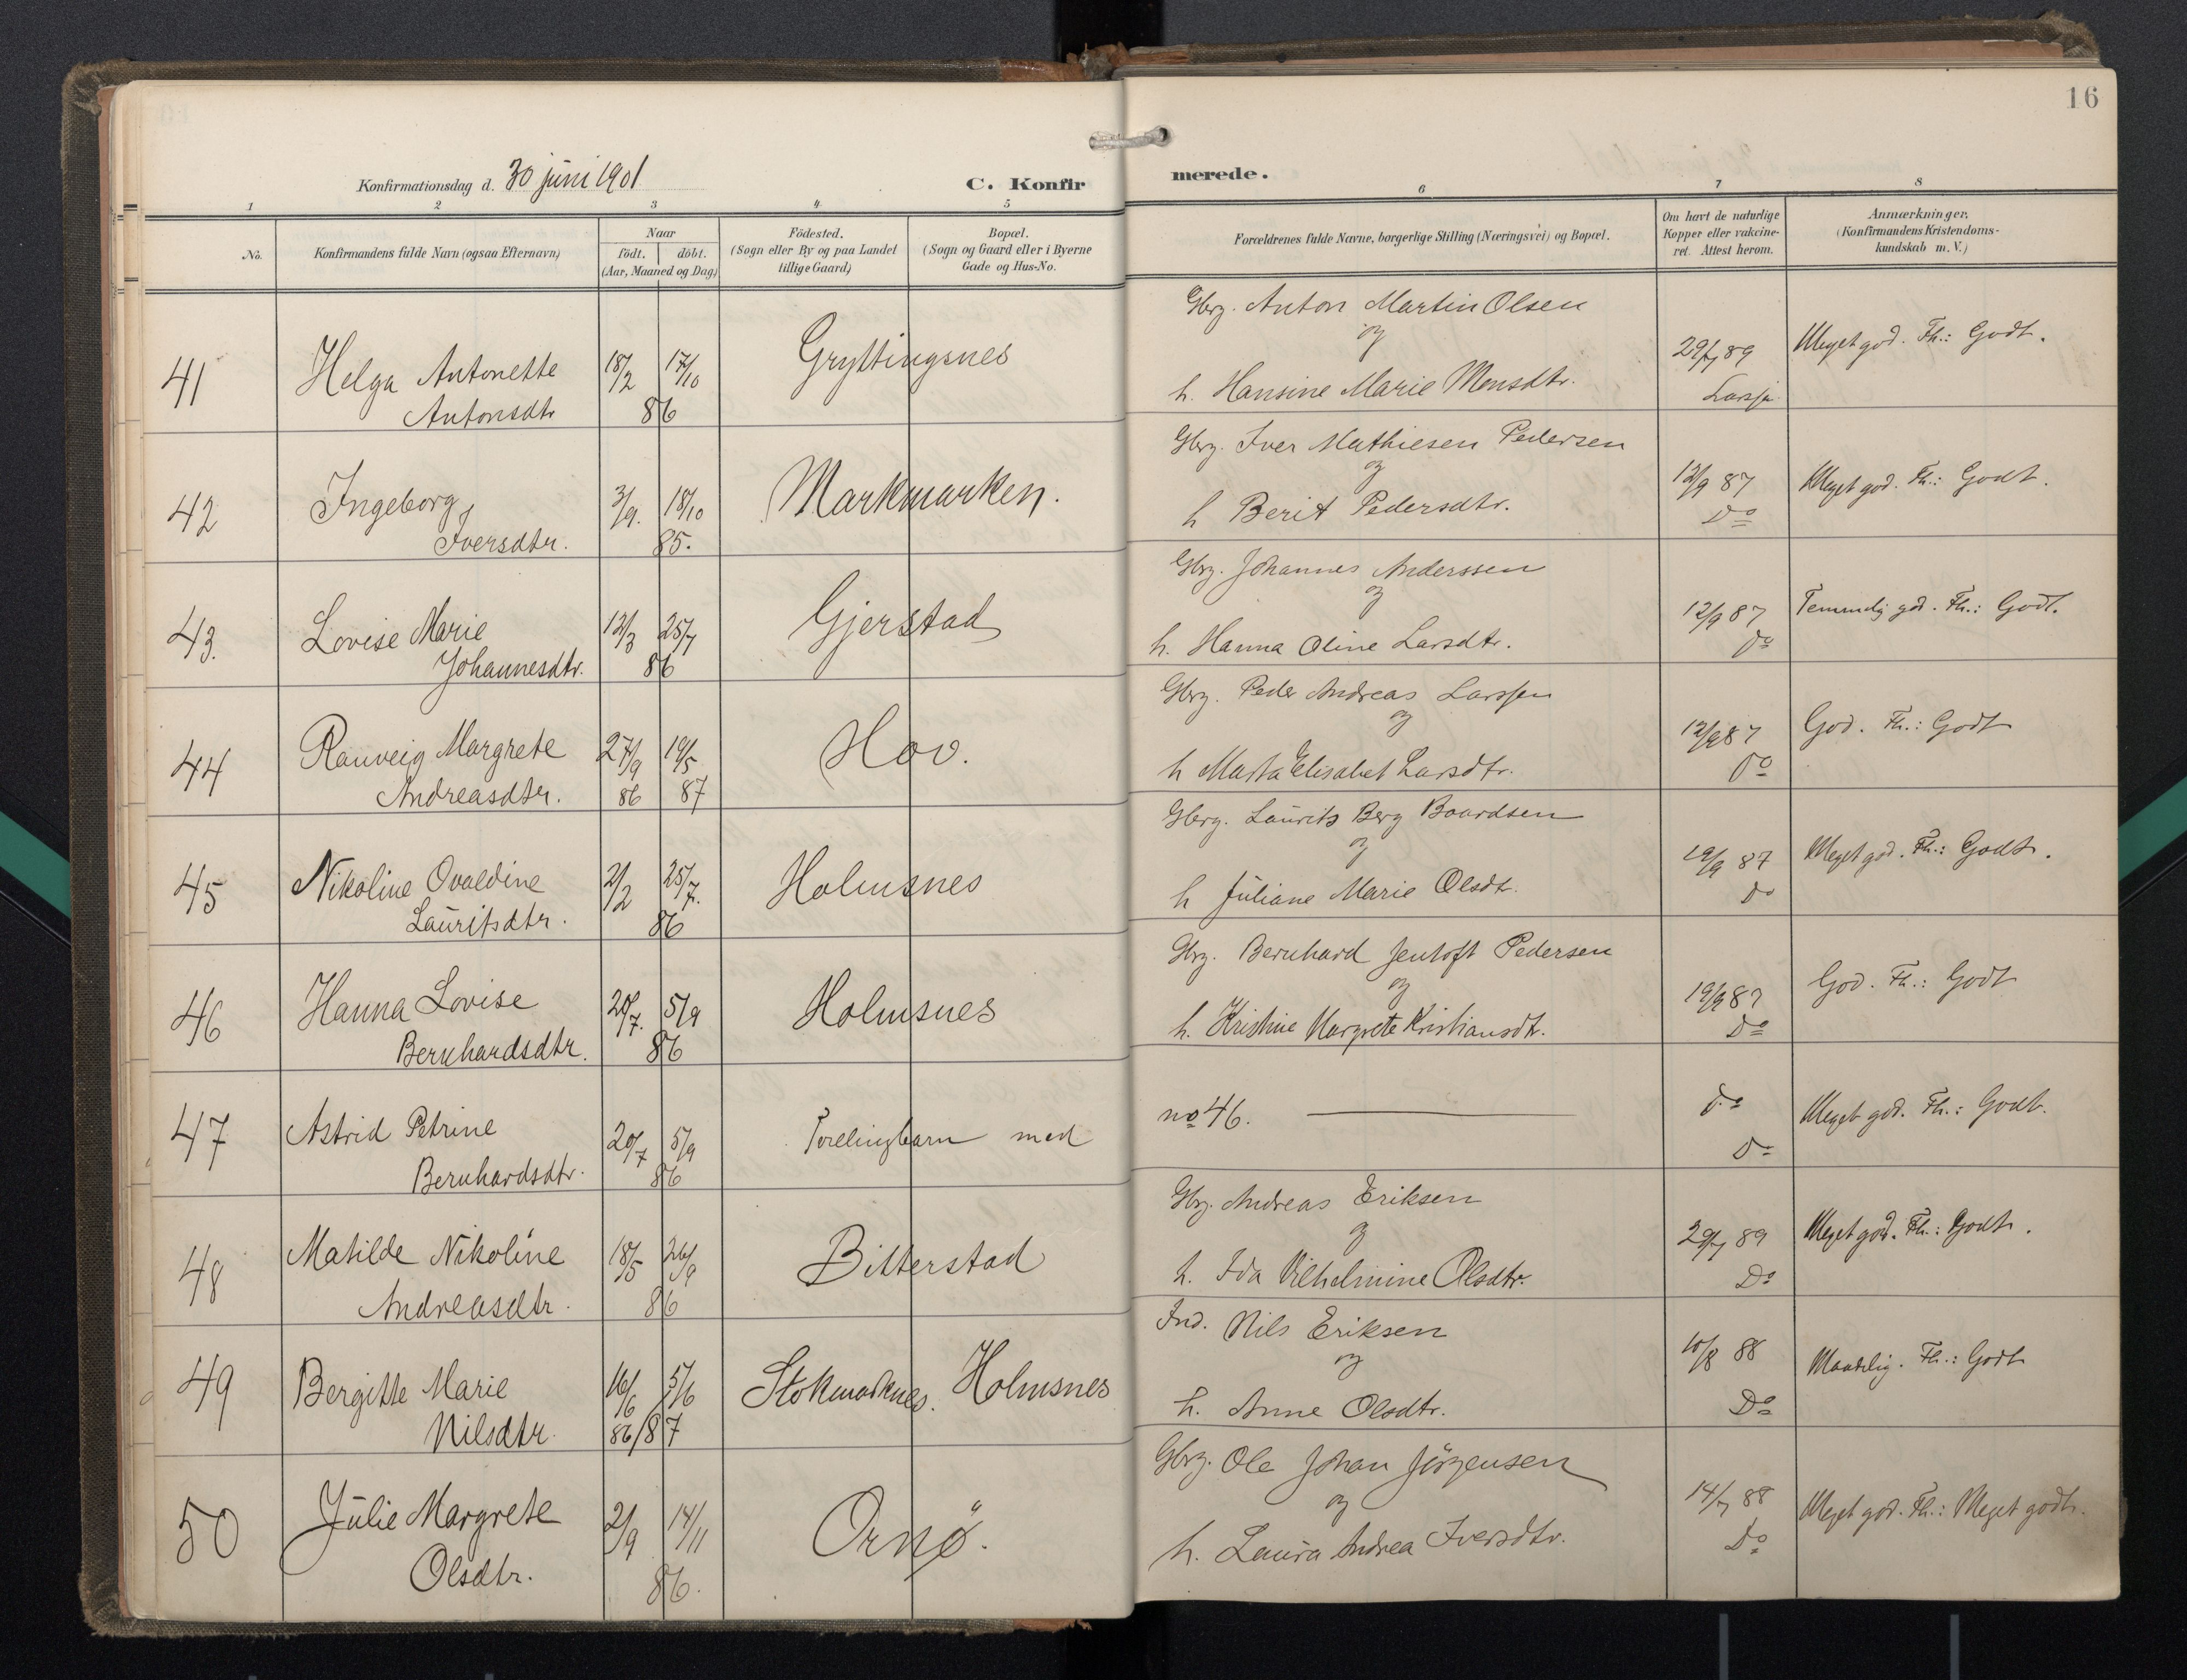 16
Konfirmationsdag d. 30 juni 1901
C. Konfirmerede.
1 2 3 4 5 6 7 8
No.
Konfirmandens fulde Navn (ogsaa Efternavn)
Naar
født. døbt.
(Aar, Maaned og Dag)
Fødested.
(Sogn eller By og paa Landet
tillige Gaard)
Bopæl.
(Sogn og Gaard eller i Byerne
Gade og Hus-No.
Forældrenes fulde Navne, borgerlige Stilling (Næringsvei) og Bopæl.
Om havt de naturlige
Kopper eller vakcine-
ret. Attest herom.
Anmærkninger.
(Konfirmandens Kristendoms-
kundskab m. V.)
41 Helga Antonette
Antonsdtr
18/2 17/10
86
Gryttingsnes
Gbrg. Anton Martin Olsen
og
h. Hansine Marie Monsdtr.
29/7 89
Meget god. Fh.: Godt.
42 Ingeborg
Iversdtr.
3/9. 18/10
85.
Markmarken.
Gbrg. Iver Mathiesen Pedersen
og
h Berit Pedersdtr.
12/9 87
Do
Meget god. Fh.: Godt.
43. Lovise Marie
Johannesdtr.
12/3 25/7
86
Gjerstad
Gbrg. Johannes Anderssen
og
h. Hanna Oline Larsdtr.
12/9 87
Do
Temmelig god. Fh.: Godt.
44 Ranveig Margrete
Andreasdtr.
27/9 19/5
86 87
Hov.
Gbrg. Peder Andreas Larssen
og
h Marta Elisabet Larsdtr.
12/9 87
Do
God. Fh.: Godt
45 Nikoline Ovaldine
Lauritsdtr.
2/2 25/7.
86
Holmsnes
Gbrg. Laurits Berg Baardsen
og
h Juliane Marie Olsdt.
19/9 87
do
Meget god. Fh.: Godt.
46 Hanna Lovise
Bernhardsdtr.
20/7. 5/9
86
Holmsnes
Gbrg. Bernhard Jentoft Pedersen
og
h. Kristine Margrete Kristiansdt.
19/9 87
Do
God. Fh.: Godt
47 Astrid Petrine
Bernhardsdtr.
20/7 5/9
86
Tvellingbarn med
no 46.
do
Do
Meget god. Fh.: Godt.
48 Matilde Nikoline
Andreasdtr.
18/5 26/9
86
Bitterstad
Gbrg. Andreas Eriksen
og
h. Ida Vilhelmine Olsdtr.
29/7 89
Do
Meget god. Fh.: Godt.
49 Bergitte Marie
Nilsdtr.
16/6 5/6
86/87
Stokmarknes. Holmsnes
Ind. Nils Eriksen
og
h. Anne Olsdtr.
10/8 88
Do
Maadelig. Fh.: Godt
50 Julie Margrete
Olsdtr.
2/9 14/11
86.
Ornø.
Gbrg. Ole Johan Jörgensen
og
h. Laura Andrea Iversdtr.
14/7 88
Do
Meget god. Fh.: Meget godt.